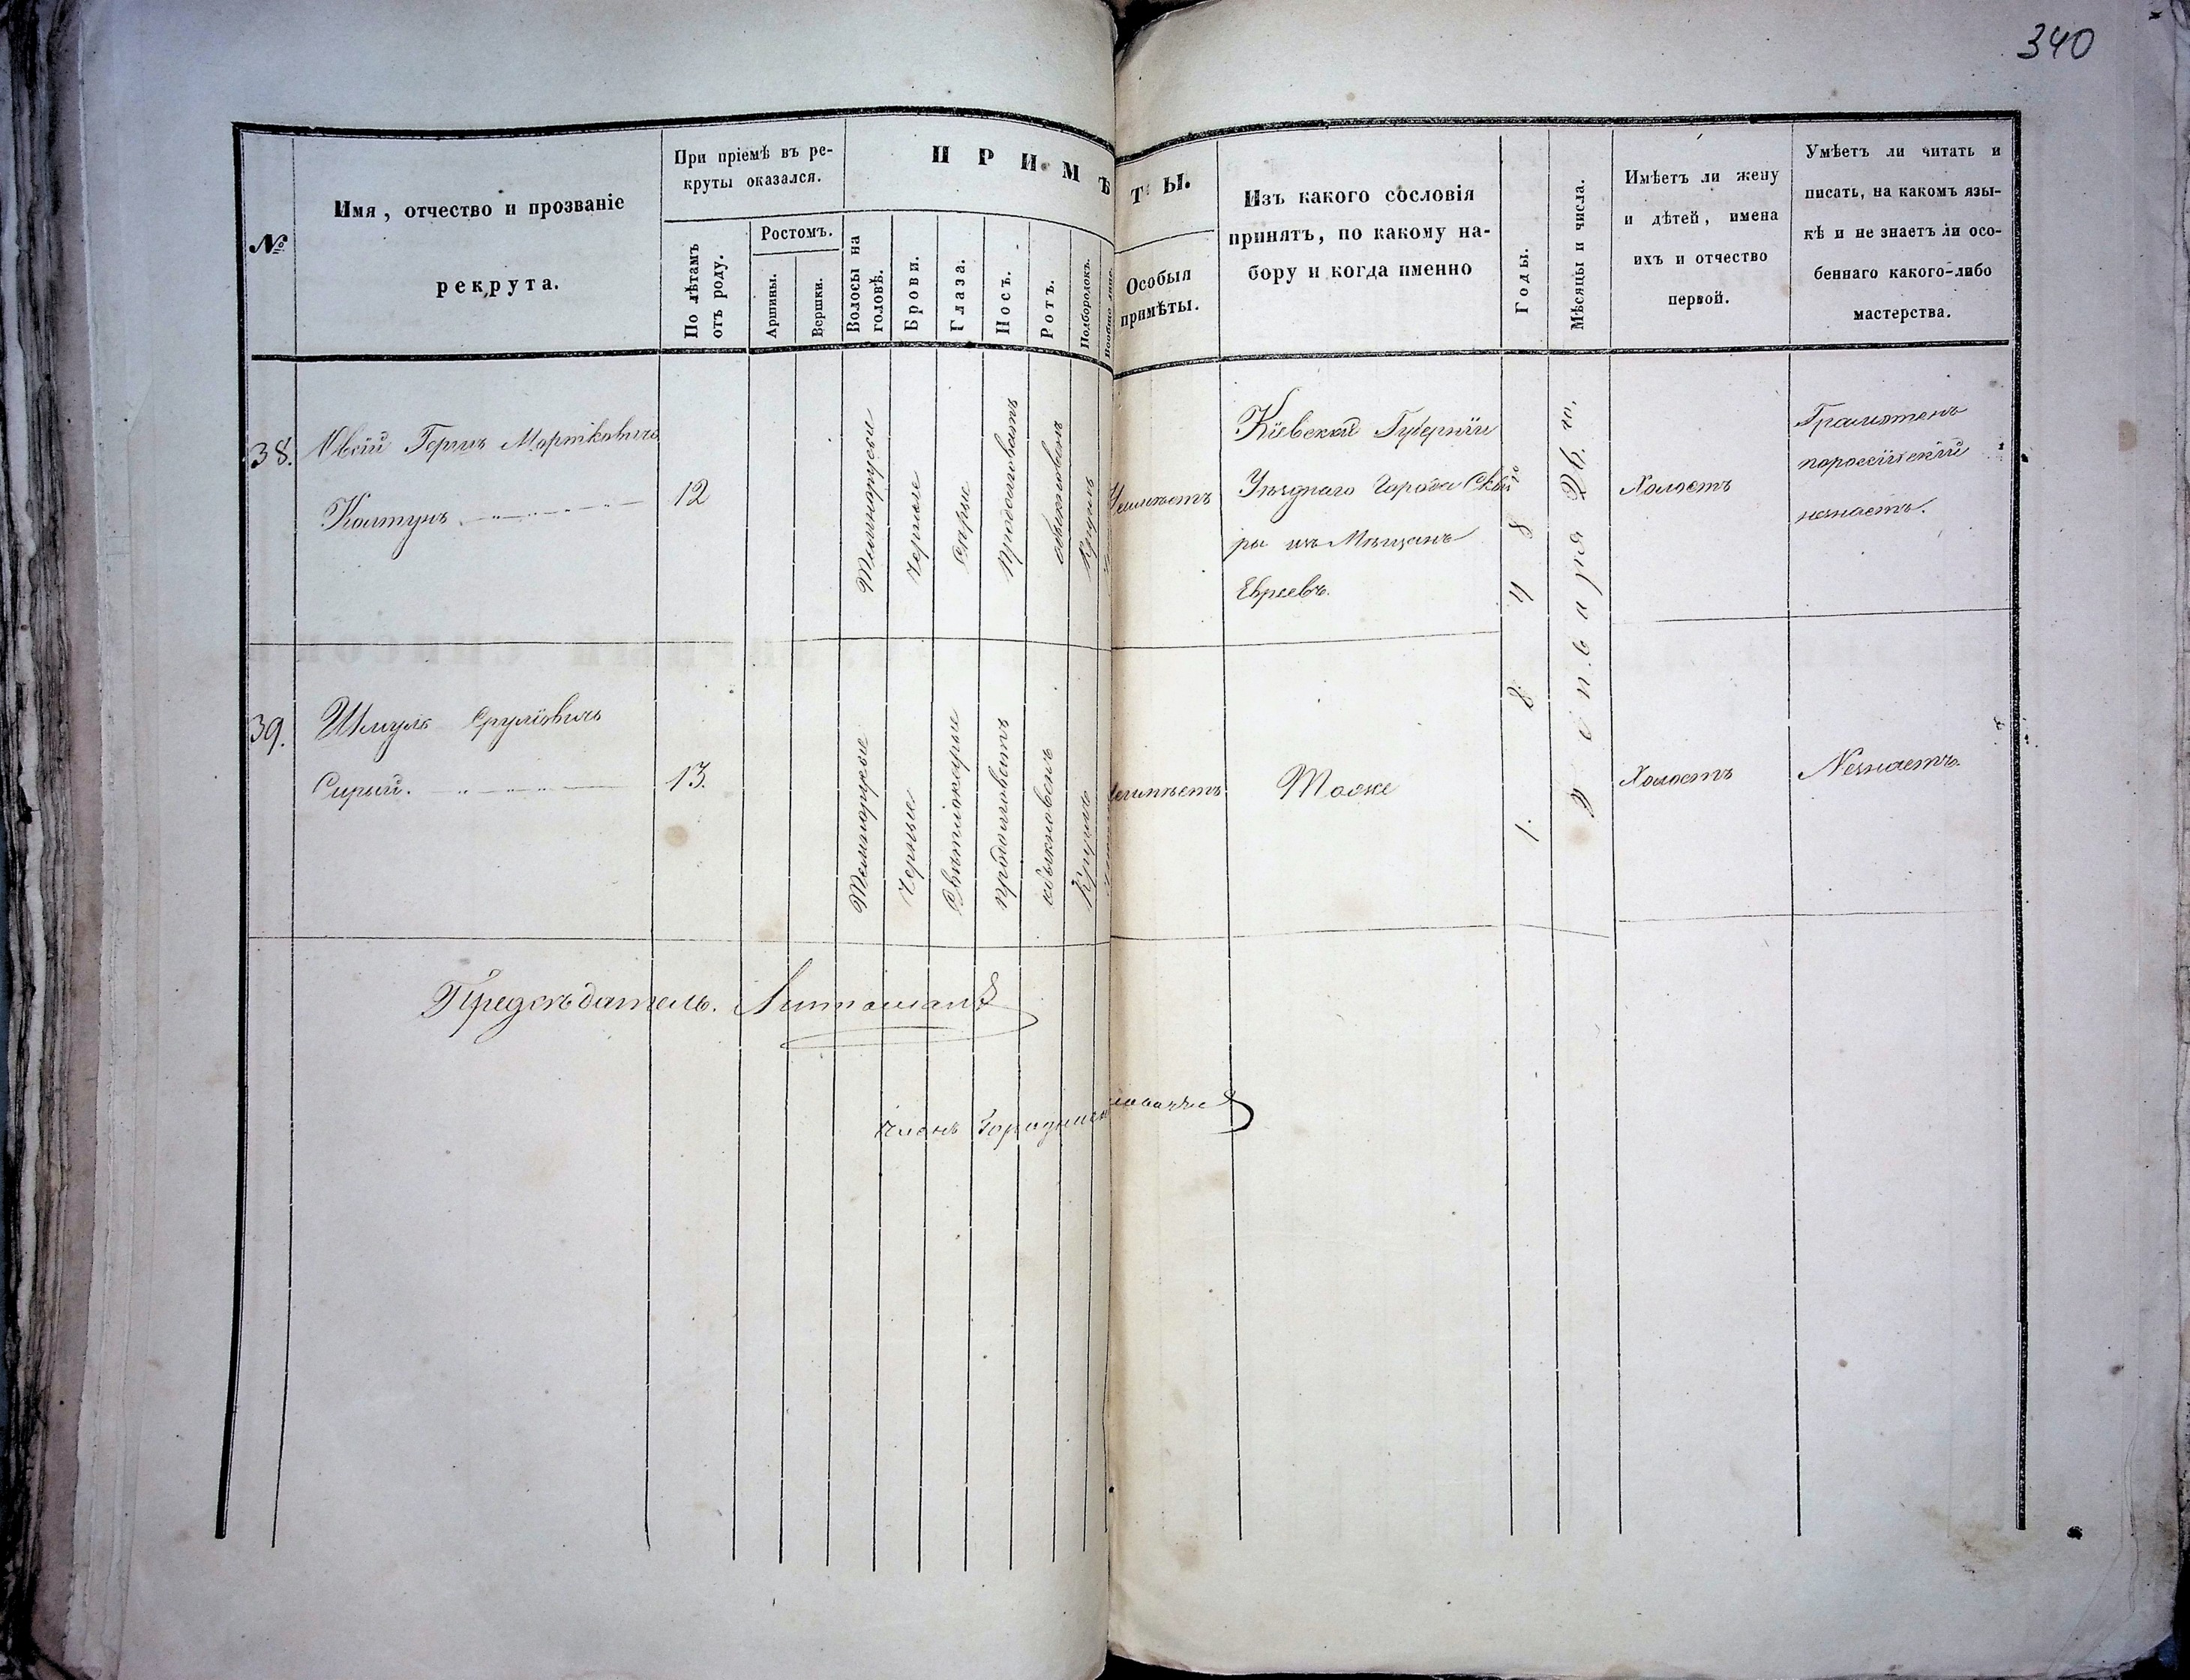 340
№
Имя, отчество и прозваніе
рекрута.
При пріемѣ въ ре-
круты оказался.
По лѣтамъ
отъ роду.
Ростомъ.
Аршины.
Вершки.
ПРИМѢТЫ.
Волосы на
головѣ.
Брови.
Глаза.
Носъ.
Ротъ.
Подбородокъ.
Вообще лице.
Особыя
примѣты.
Изъ какого сословія
принятъ, по какому на-
бору и когда именно
Годы.
Мѣсяцы и числа.
Имѣетъ ли жену
и дѣтей, имена
ихъ и отчество
первой.
Умѣетъ ли читать и
писать, на какомъ язы-
кѣ и не знаетъ ли осо-
беннаго какого-либо
мастерства.
38.
Овсій Гершъ Мортковичъ
Колтунъ
12
Темнорусыя
Черные
Сѣрые
Продолговатъ
обыкновенъ
Круглъ
Неимѣетъ
Кіевской Губерніи
Уѣзднаго Города Скви
ры изъ Мѣщанъ
Евреевъ.
1848
Января 26. го.
Холостъ
Грамотенъ
пороссійскій
незнаетъ.
39.
Шмуль Срулiовичъ
Сирый.
13.
Темнорусые
Черные
Свѣтлокарые
продолговатъ
обыкновенъ
Круглъ
Неимѣетъ
Тоже
Холостъ
Незнаетъ.
Предсѣдатель.
Членъ